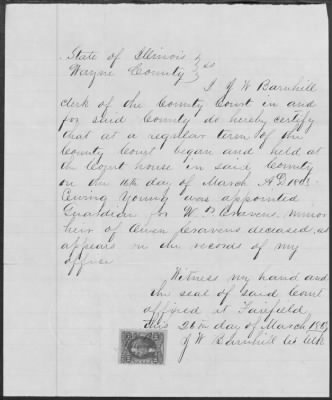 State of Illinois } ss
Wayne County }
I J W Barnhill
clerk of the County Court in and
for said County do hereby certify
that at a regular term of the
County Court began and held at
the Court house in said County
on the 11th day of March A.D.
Ewing Young was appointed
Guardian for W P Cravens minor
heir of Owen Cravens deceased as
appears in the records of my
office
Witness my hand and
the seal of said Court
affixed at Fairfield
this 26th day of March
J W Barnhill Co Clk